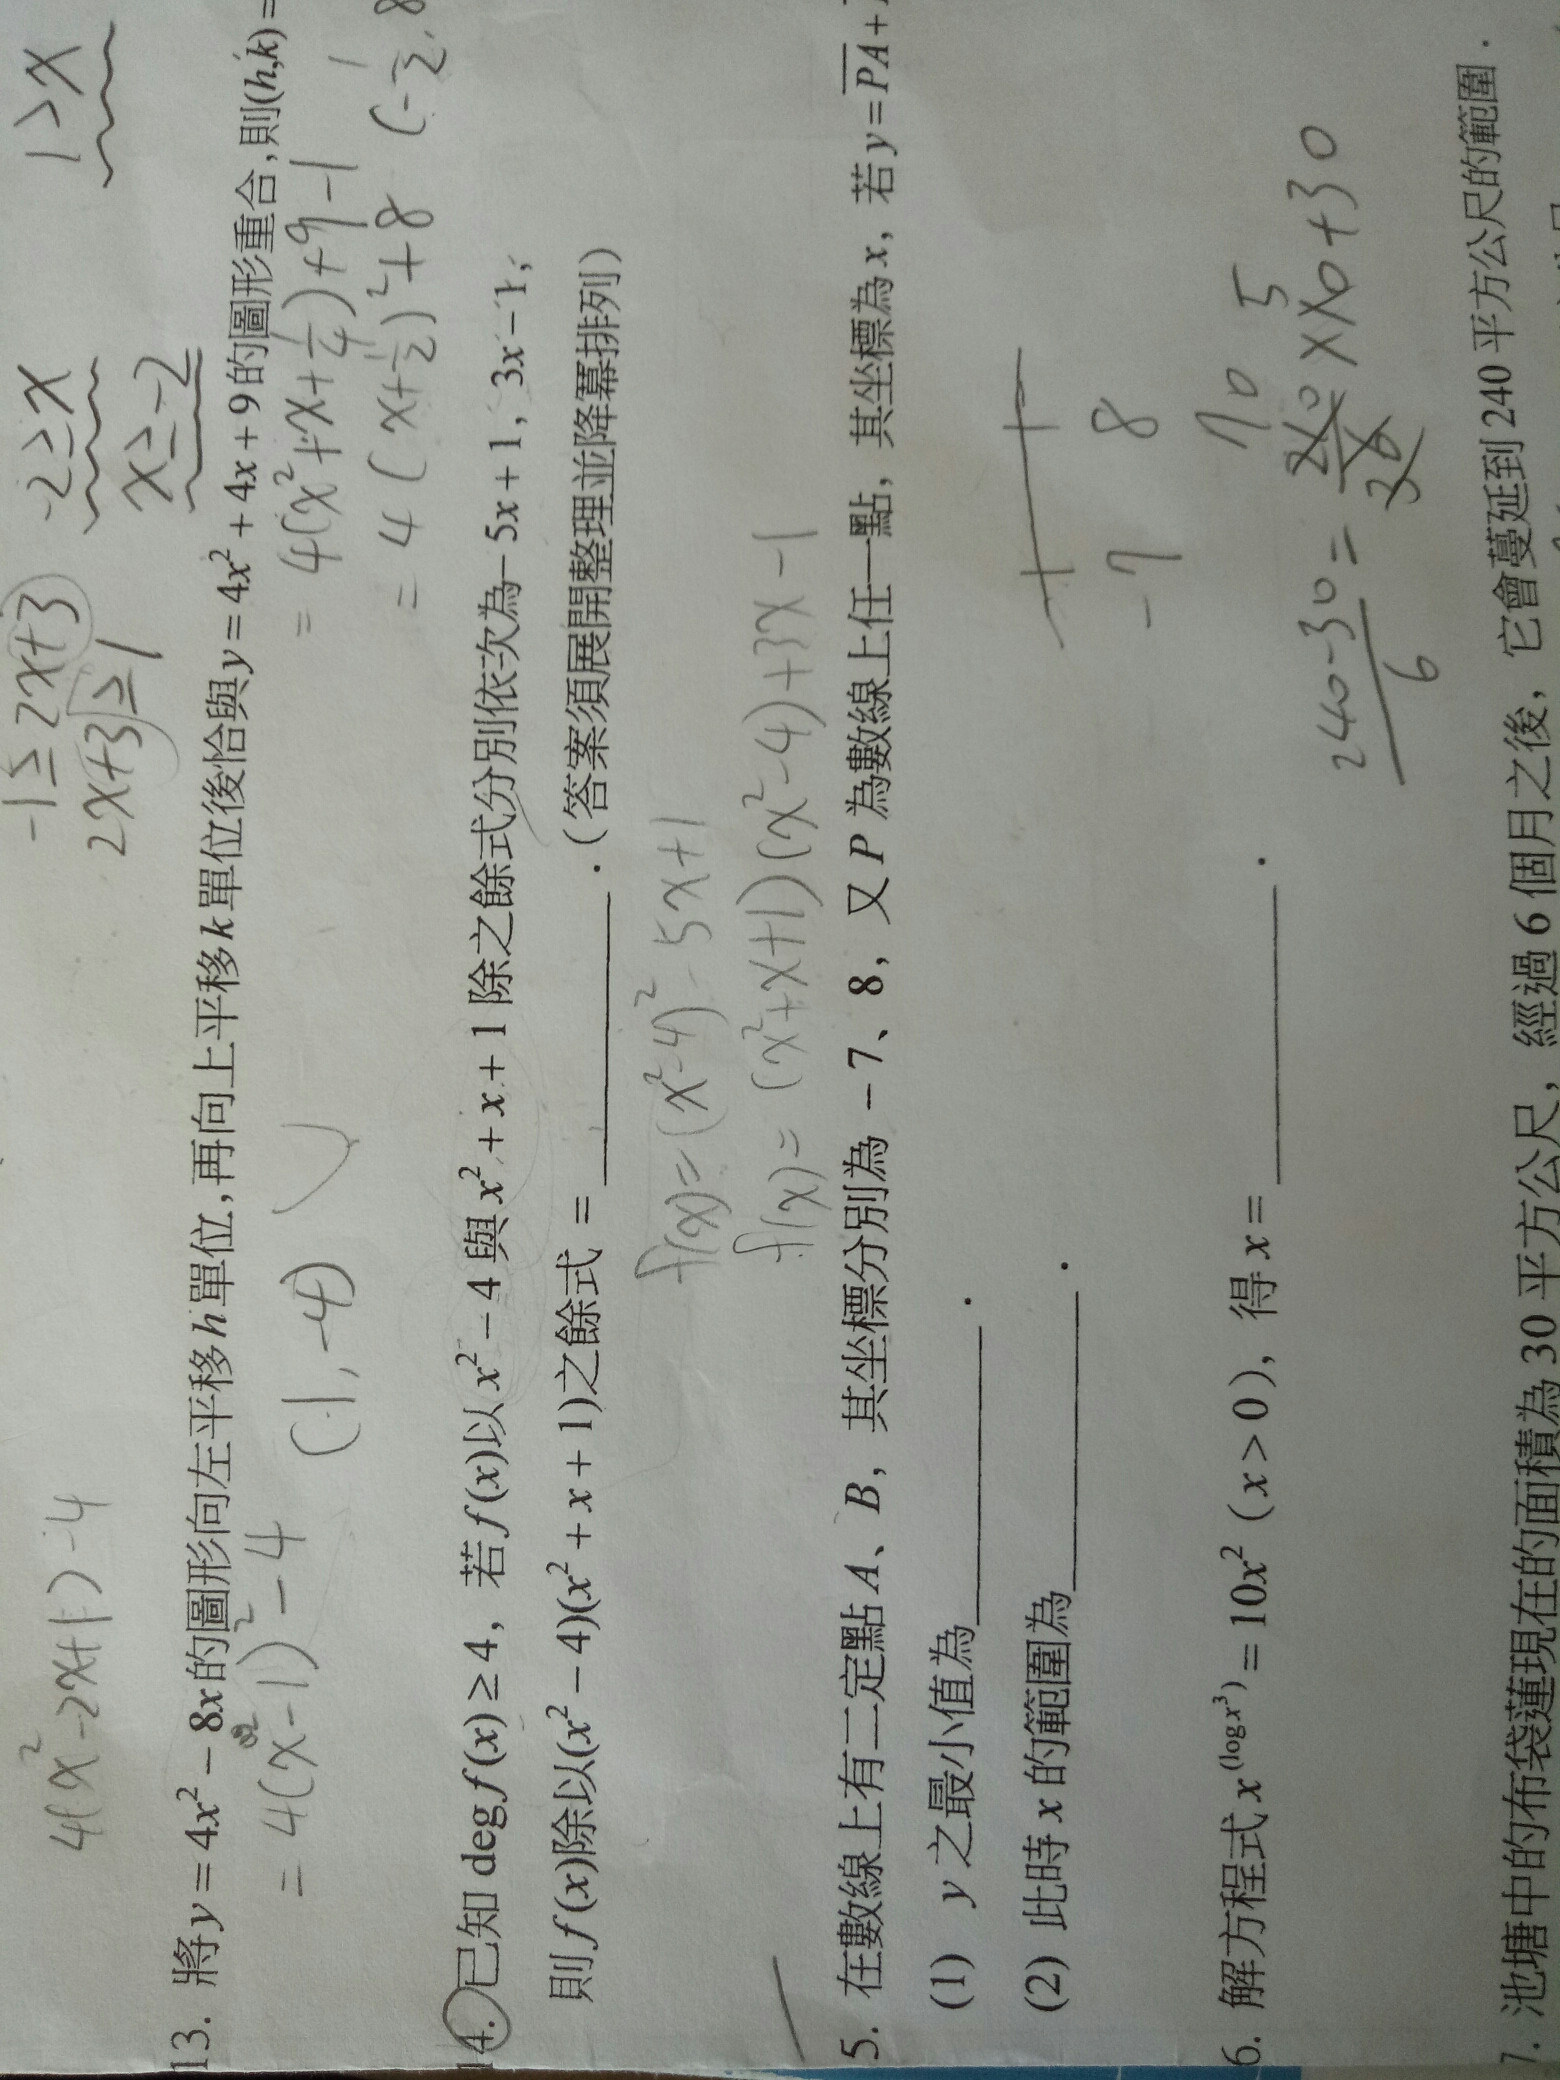 -1 ≥ 2x+3 -2 ≥ x 1 > x
4(x²-2x+1)-4 2x+3 ≥ 1 x ≥ -2
13. 將y=4x²-8x的圖形向左平移h單位,再向上平移k單位後恰與y=4x²+4x+9的圖形重合,則(h,k)=
=4(x-1)²-4 (1,-4) =4(x²+x+1/4)+9-1
=4(x+1/2)²+8 (-1/2,8
14. 已知 deg f(x)≥4,若f(x)以x²-4與x²+x+1除之餘式分別依次為-5x+1,3x-1,
則f(x)除以(x²-4)(x²+x+1)之餘式=________.(答案須展開整理並降冪排列)
f(x)=(x²-4)²-5x+1
f(x)=(x²+x+1)(x²-4)+3x-1
5. 在數線上有二定點A、B,其坐標分別為-7、8,又P為數線上任一點,其坐標為x,若y=PA+
(1) y之最小值為________.
(2) 此時x的範圍為________.
-7 8
6. 解方程式x^(log x³)=10x²(x>0),得x=________.
240-30
6
7. 池塘中的布袋蓮現在的面積為30平方公尺,經過6個月之後,它會蔓延到240平方公尺的範圍.